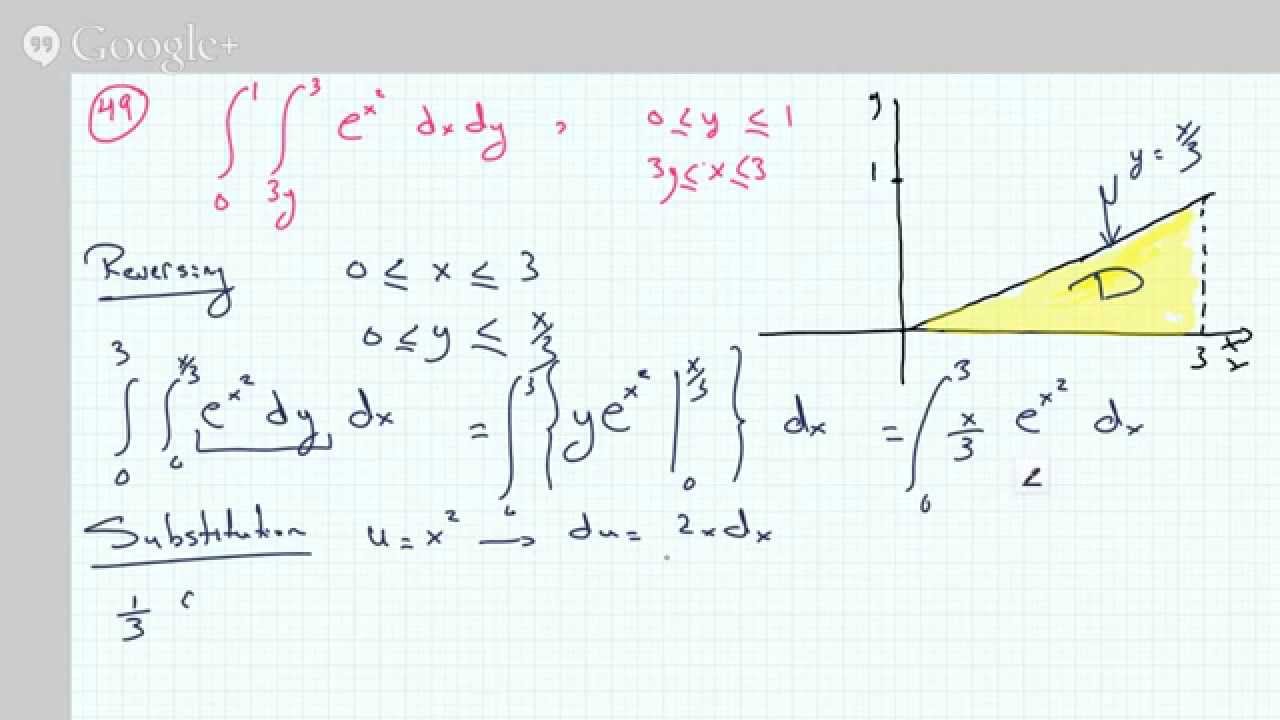 Google+
49 ∫₀¹ ∫₃ᵧ³ e^{x²} dx dy , 0 ≤ y ≤ 1
3y ≤ x ≤ 3
y
1
y = x/3
D
3
x
Reversing 0 ≤ x ≤ 3
0 ≤ y ≤ x/3
∫₀³ ∫₀^{x/3} e^{x²} dy dx = ∫₀³ { y e^{x²} |₀^{x/3} } dx = ∫₀³ x/3 e^{x²} dx
Substitution u = x² → du = 2x dx
1/3